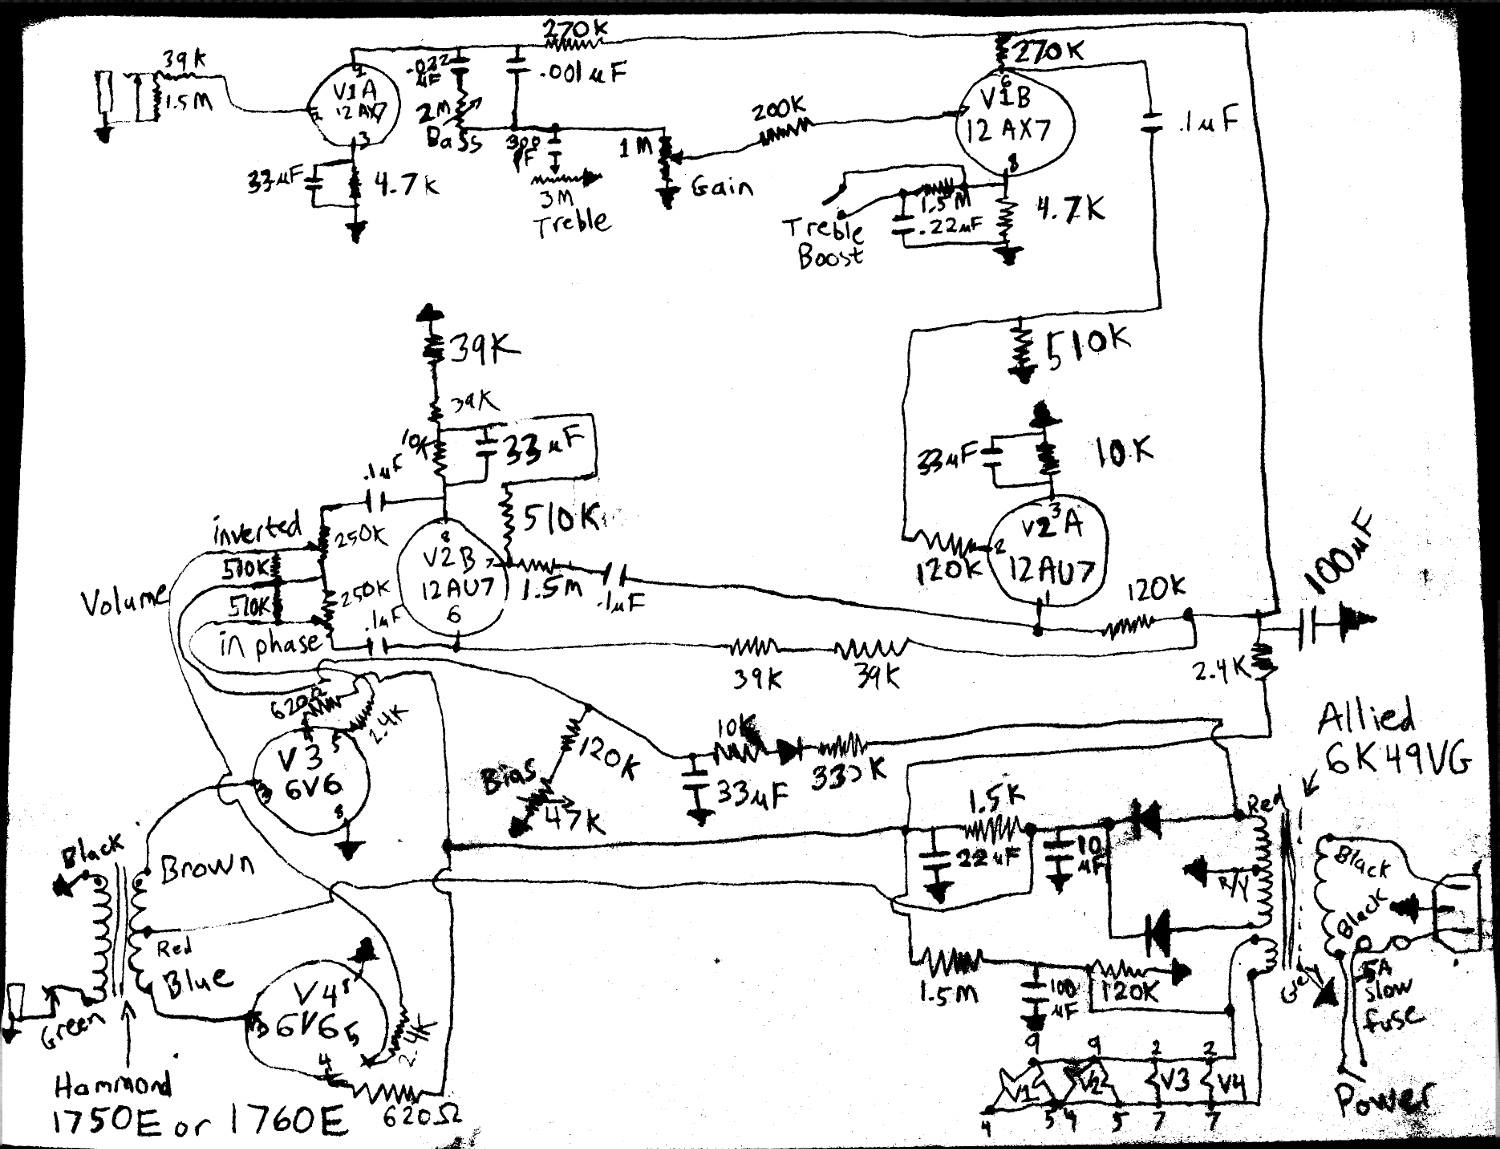 270K
39K
1.5M
1
V1A
12AX7
2
3
.022
µF
.001µF
2M
Bass
300
PF
1M
200K
Gain
3M
Treble
33µF
4.7K
270K
6
V1B
12AX7
8
.1µF
1.5M
.22µF
4.7K
Treble
Boost
39K
39K
10K
33µF
.1µF
510K
510K
33µF
10K
inverted
250K
8
V2B
7
12AU7
6
1.5M
.1µF
3
V2A
2
12AU7
1
120K
120K
100µF
Volume
510K
510K
250K
.1µF
in phase
39K
39K
2.4K
620Ω
2.4K
V3
6V6
5
3
8
Bias
120K
47K
10K
330K
33µF
Allied
6K49VG
1.5K
22µF
10
µF
Red
R/Y
Black
Black
Black
Brown
Red
Blue
Green
V4
6V6
8
5
3
4
2.4K
620Ω
1.5M
100
µF
120K
Grey
5A
slow
fuse
Power
9
9
2
2
V1
V2
V3
V4
4
5
4
5
7
7
Hammond
1750E or 1760E